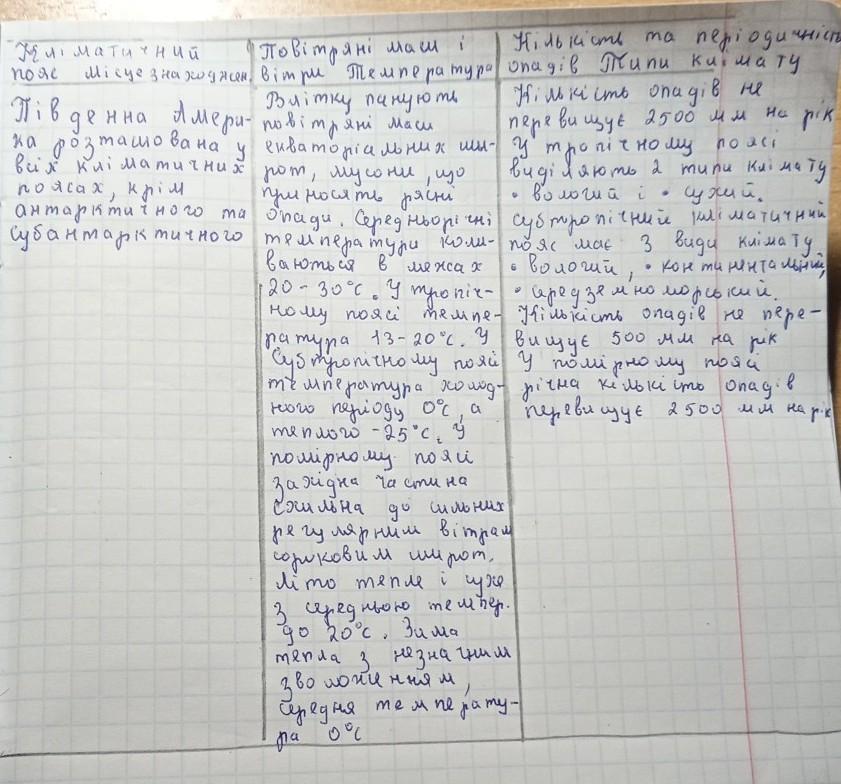 Кліматичний
пояс Місцезнаходжен.
Повітряні маси і
вітри Температура
Кількість та періодичність
опадів Типи клімату
Південна Амери-
ка розташована у
всіх кліматичних
поясах, крім
антарктичного та
субантарктичного
Влітку панують
повітряні маси
екваторіальних ши-
рот, мусони, що
приносять рясні
опади. Середньорічні
температури коли-
ваються в межах
20-30°С. У тропіч-
ному поясі темпе-
ратура 13-20°С. У
Субтропічному поясі
температура холод-
ного періоду 0°С, а
теплого -25°С. У
помірному поясі
західна частина
схильна до сильних
регулярним вітрам
сорокових широт.
Літо тепле і сухе
з середньою темпер.
до 20°С. Зима
тепла з незначним
зволоженням,
середня температу-
ра 0°С
Кількість опадів не
перевищує 2500 мм на рік
У тропічному поясі
виділяють 2 типи клімату
• вологий і • сухий.
Субтропічний кліматичний
пояс має 3 види клімату
• вологий, • континентальний,
• середземноморський.
Кількість опадів не пере-
вищує 500 мм на рік
У помірному поясі
річна кількість опадів
перевищує 2500 мм на рік